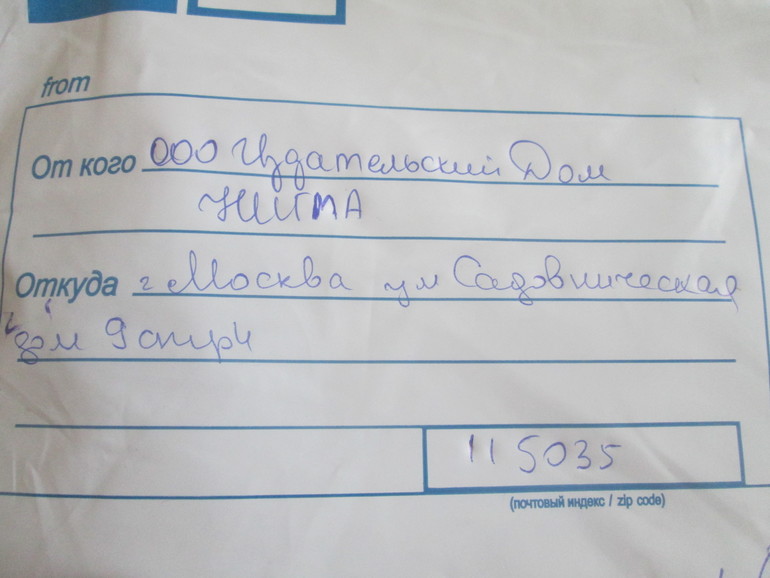 from
От кого ООО Издательский Дом
НИГМА
Откуда г Москва ул Садовническая
дом 9 стр 4
115035
(почтовый индекс / zip code)